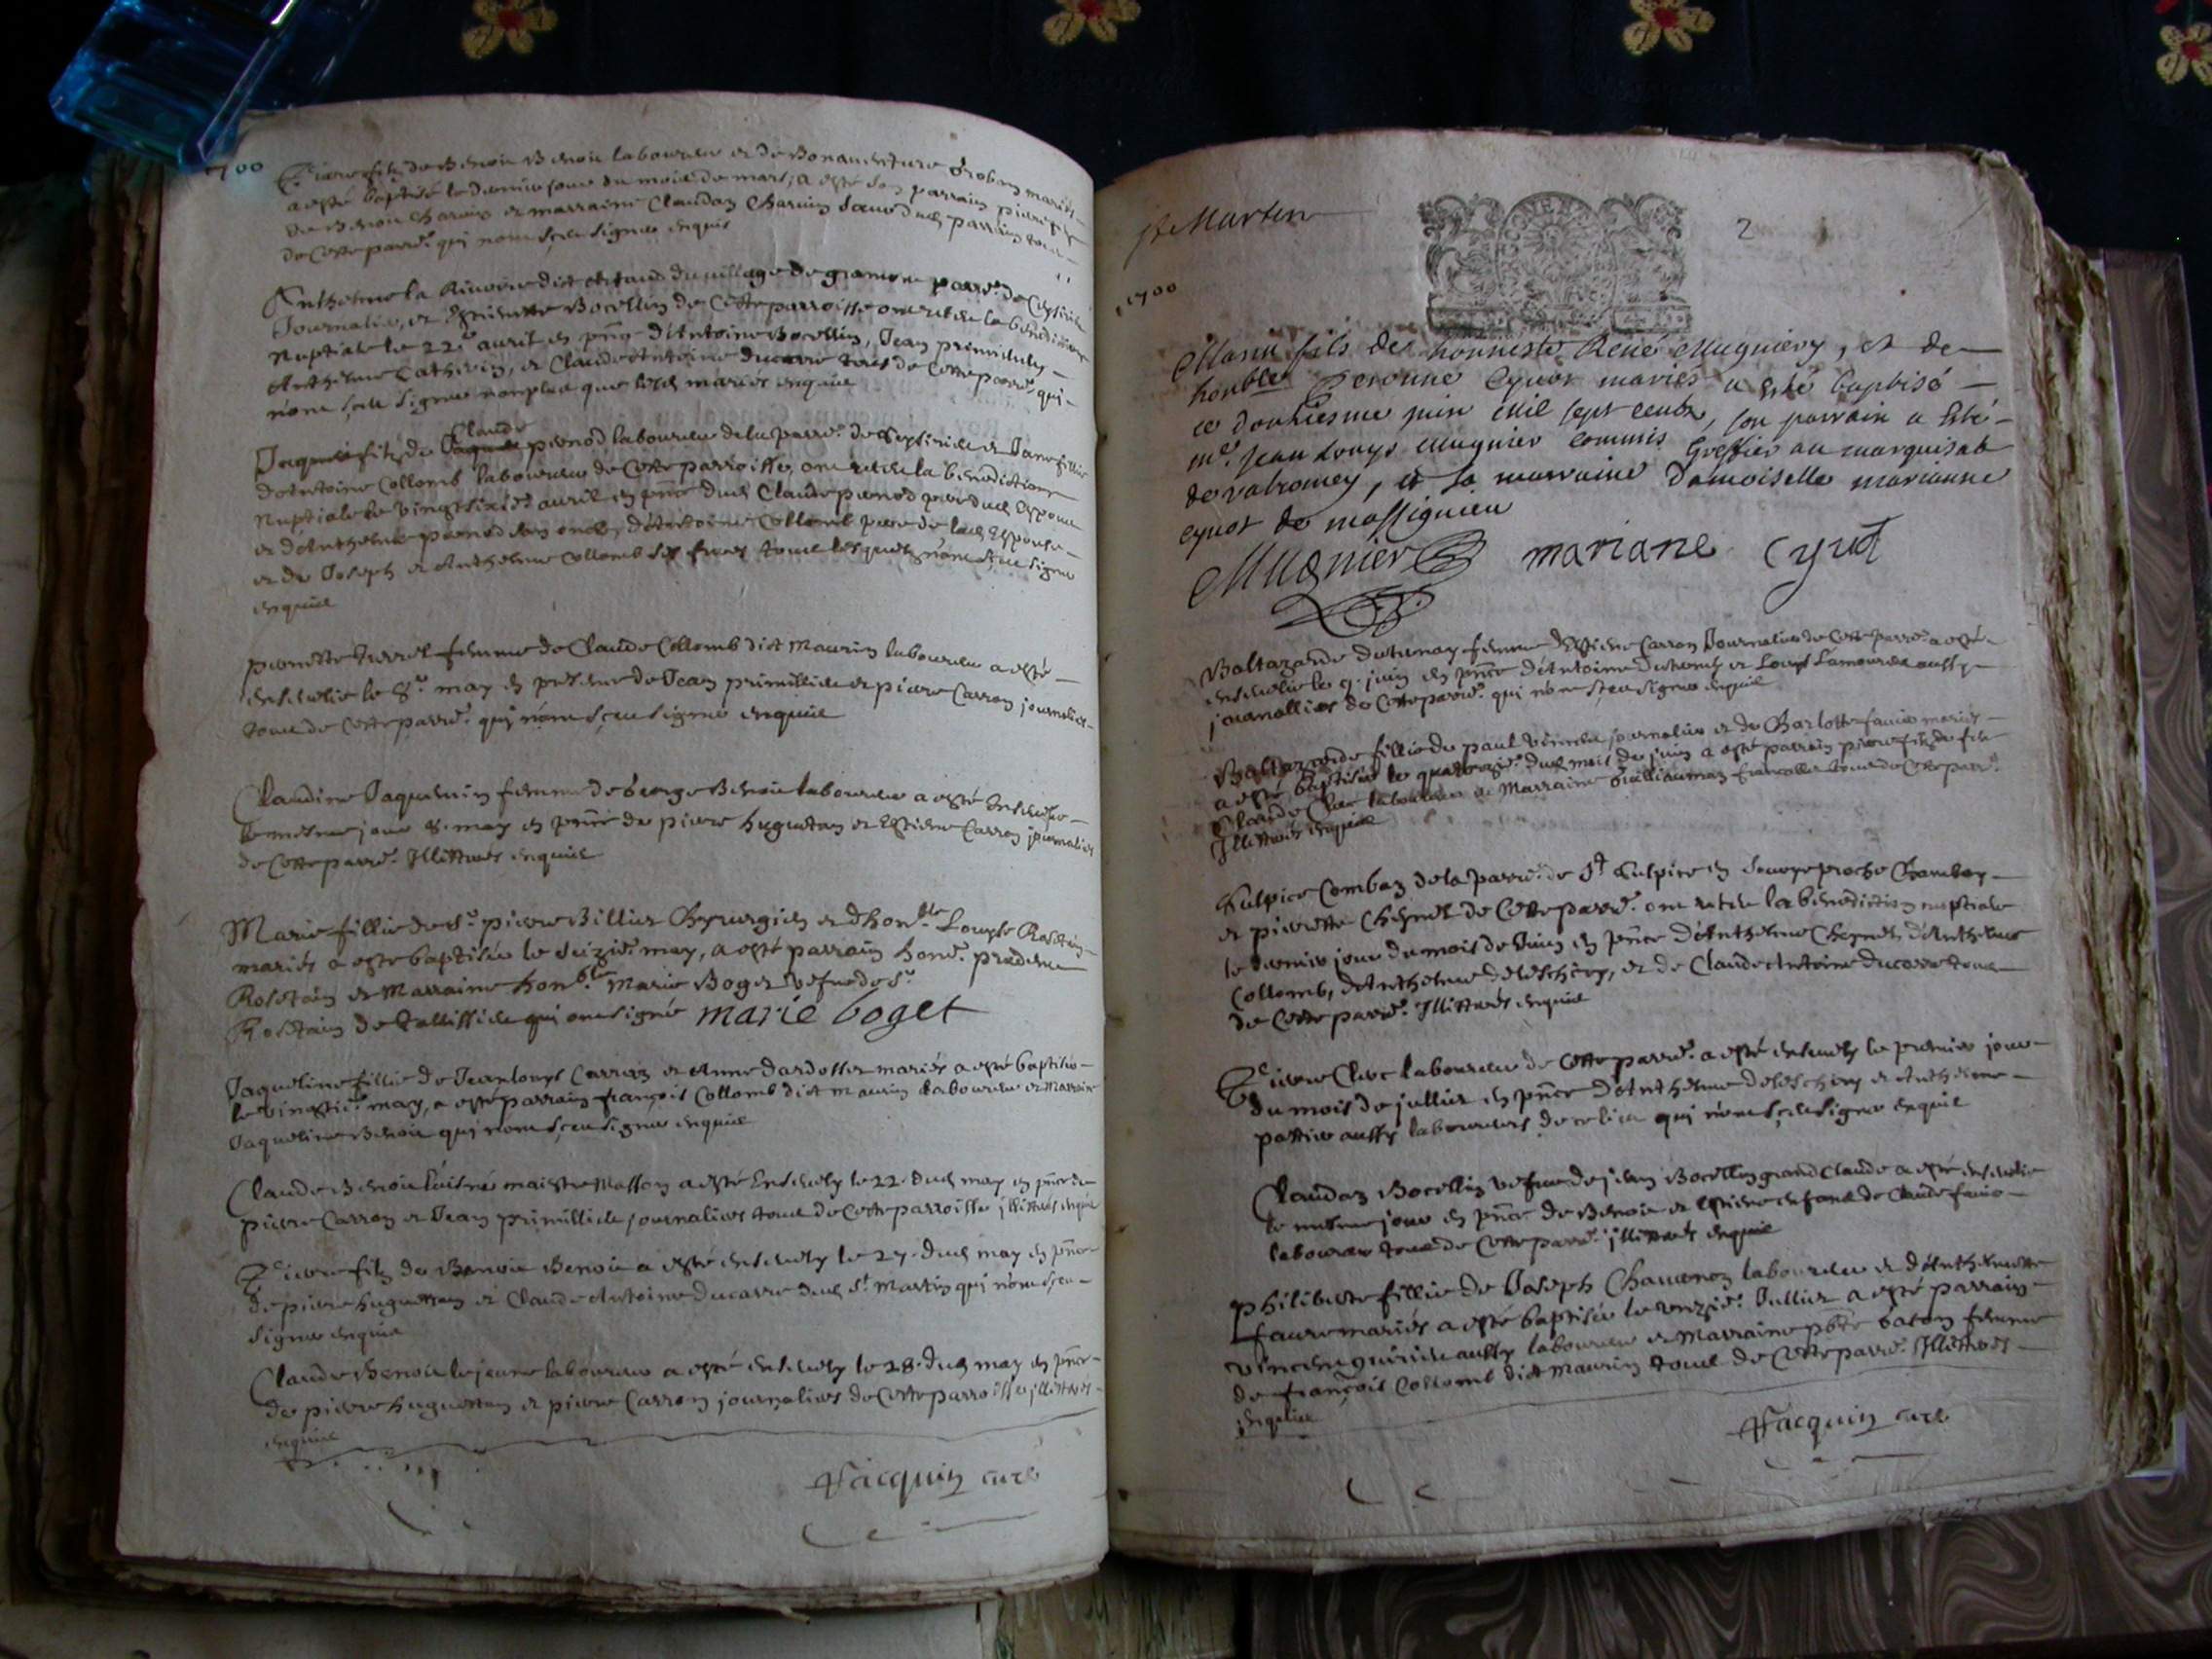 1700
Pierre filz de Benoit Benoit laboureur et de Bonaventure Grobon mariés
a esté baptisé le dernier jour du mois de mars, a esté son parrain pierre filz
de Benoit Charvin et marraine Claudaz Charvin dud parrain tous
de Cette parr.e qui n'ont sçeu signer enquis
Anthelme la Riviere dict du village de parr.e de Ceyserieu
Journalier, et Estiennette Bocellin de Cette parroisse ont receu la benediction
Nuptiale le 22.e avril en pñce d'Antoine Bocellin, Jean primillieu
Anthelme Cathelin, et Claude Antoine ducarre tous de Cette parr.e qui
n'ont sçeu signer nonplus que lesd mariés enquis
Claude
Jacques filz de pernod laboureur de la parr.e de Ceyserieu et Jane fillie
d'Antoine Collomb laboureur de Cette parroisse, ont receu la benediction
Nuptiale le vingtsixie avril en pñce dud Claude pernod pere dud Espoux
et d'Anthelme pernod son oncle, d'Antoine Collomb pere de lad Espouse
et de Joseph et Anthelme Collomb ses freres tous lesquels n'ont sçeu signer
enquis
pernette femme de Claude Collomb dict Maurin laboureur a esté
ensevelie le 8.e may en presence de Jean primillieu et pierre Carron journaliers
tous de Cette parr.e qui n'ont sçeu signer enquis
Claudine Jaquemin femme de George Benoit laboureur a esté Ensevelie
le mesme jour 8. may en pñce de pierre huguettan et Estienne Carron journaliers
de Cette parr.e Illittrés enquis
Marie fillie de s.r pierre Billiet Chyrurgien et d'hon.ble Louyse Rostain
mariés a esté baptisée le seizie may, a esté parrain hon.e prudent
Rostain et Marraine hon.ble Marie Boget vefve de s.r
Rostain de Tallissieu qui ont signé marie boget
Jaqueline fillie de Jeanlouys Carrier et Anne dardosset mariés a esté baptisée
le vingtie may, a esté parrain françois Collomb dict Maurin Laboureur et Marraine
Jaqueline Benoit qui n'ont sçeu signer enquis
Claude Benoit l'aisné maistre Masson a esté Ensevely le 22. dud may en pñce de
pierre Carron et Jean primillieu journaliers tous de Cette parroisse illittrés enquis
Pierre filz de Benoit Benoit a esté ensevely le 27. dud may en pñce
de pierre huguettan et Claude Antoine ducarre dud S.t Martin qui n'ont sçeu
signer enquis
Claude Benoit le jeune laboureur a esté ensevely le 28. dud may en pñce
de pierre huguettan et pierre Carron journaliers de Cette parroisse illittrés
enquis
Jacquin curé
St Martin
2
1700
fils de honneste René Mugniery, et de
honble Peronne Cyvot mariés a esté baptisé
ce douziesme juin mil sept cents, son parrain a esté
m.e Jean Louys Mugnier commis Greffier au marquisat
de valromey, et sa marraine Damoiselle marianne
cyvot de massignieu
Mugnier mariane Cyvot
Baltazarde dutrunay femme d'Estienne Carron Journalier de Cette parr.e a esté
ensevelie le 9. juin en pñce d'Antoine et Louys Lamoureu aussy
journalliers de Cette parr.e qui n'ont sçeu signer enquis
Baltazarde fillie de paul journalier et de Charlotte favier mariés
a esté baptisée le dud mois de juin a esté parrain pierre filz de feu
Claude Clerc laboureur et Marraine Guilliaumaz tous de Cette parr.e
Illittrés enquis
Sulpice Combaz de la parr.e de S.t Sulpice en Savoye proche Chambery
et pierrette Cheynet de Cette parr.e ont receu la benediction nuptiale
le dernier jour du mois de Juin en pñce d'Anthelme Cheynet, d'Anthelme
Collomb, d'Anthelme deleschiery, et de Claude Antoine ducarre tous
de Cette parr.e Illittrés enquis
Pierre Clerc laboureur de Cette parr.e a esté ensevely le premier jour
du mois de jullier en pñce d'Anthelme deleschiery et Anthelme
pattier aussy laboureurs de ce lieu qui n'ont sçeu signer enquis
Claudaz Bocellin vefve de jean Bocellin grand Claude a esté ensevelie
le mesme jour en pñce de Benoit et Estienne enfans de Claude favier
laboureur tous de Cette parr.e illittrés enquis
philiberte fillie de Joseph Chamenoz laboureur et d'Anthelmette
faure mariés a esté baptisée le unzie Jullier a esté parrain
vincent aussy laboureur et Marraine pbte baton femme
de françois Collomb dict Maurin tous de Cette parr.e Illittrés
enquis
Jacquin curé